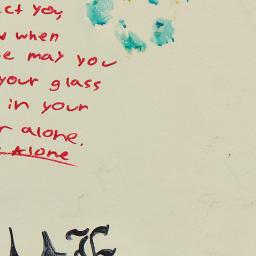 ct you,
when
e may you
your glass
in your
r alone.
Alone